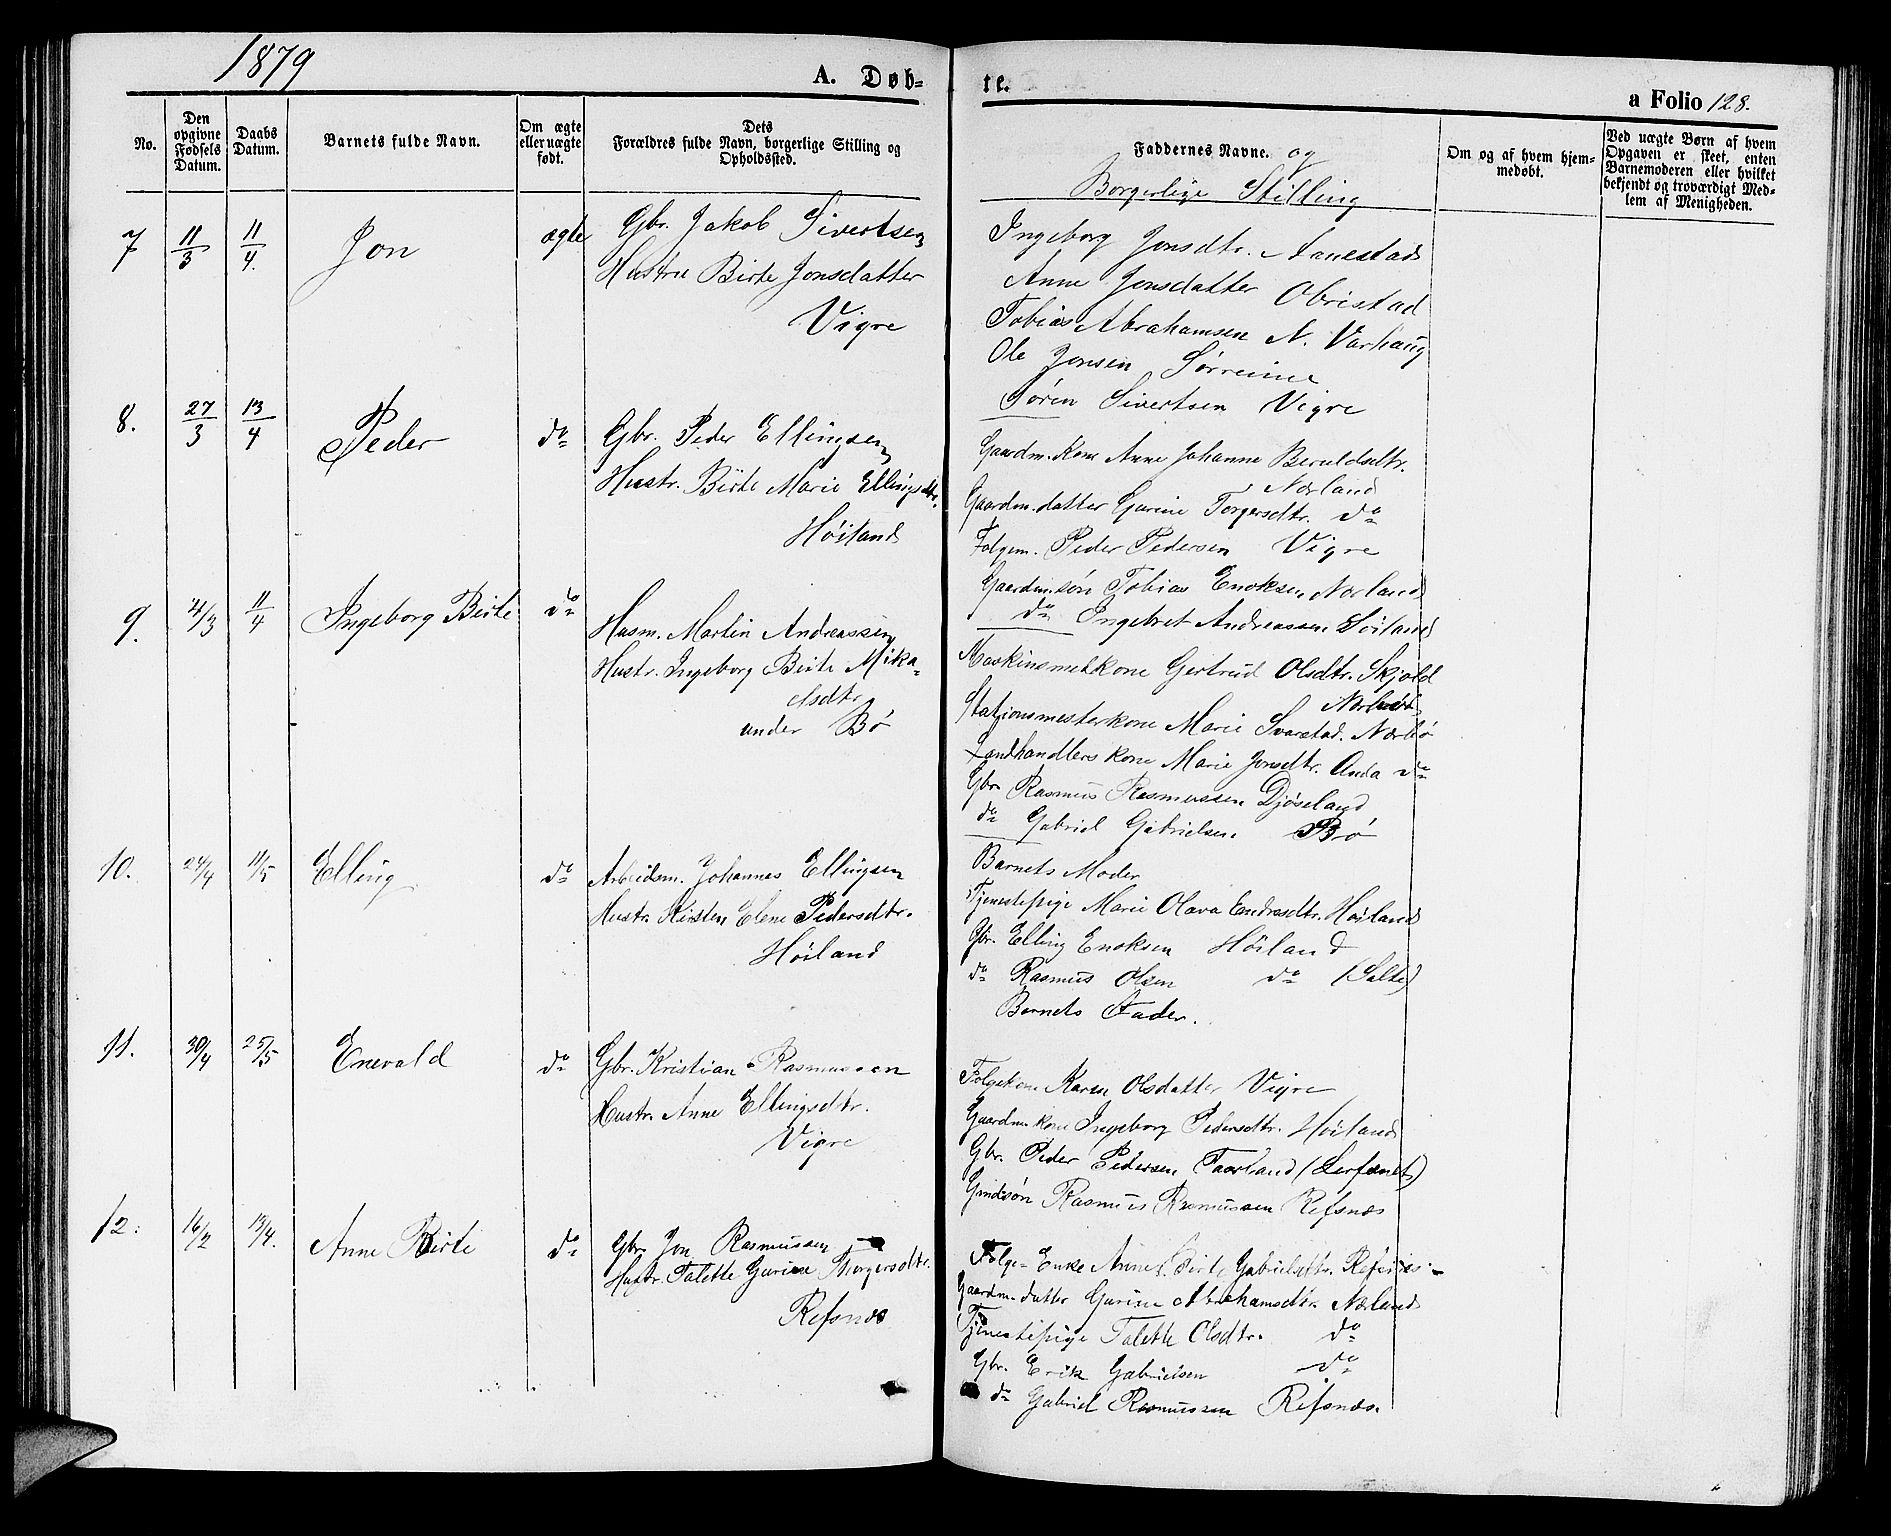 1879
A. Døb-
te.
a Folio 128.
No.
Den opgivne Fødsels Datum.
Daabs Datum.
Barnets fulde Navn.
Om ægte eller uægte født.
Dets Forældres fulde Navn, borgerlige Stilling og Opholdssted.
Faddernes Navne. og
Borgerlige Stilling
Om og af hvem hjem-
medøbt.
Ved uægte Børn af hvem
Opgaven er skeet, enten
Barnemoderen eller hvilket
bekjendt og troværdigt Med-
lem af Menigheden.
7 11/3 11/4. Jon ægte Gbr. Jakob Sivertsen
Hustru Birte Jonsdatter
Vigre
Ingeborg Jonsdtr. Aanestad
Anne Jonsdatter Obristad
Tobias Abrahamsen N. Varhaug
Ole Jonsen Sørreime
Søren Sivertsen Vigre
8. 27/3 13/4 Peder do Gbr. Peder Ellingsen
Hustr. Birte Marie Ellingsdtr.
Höiland
Gaardm. Kone Anne Johanne Beruldsdtr.
Nærland
Gaardm. datter Gurine Torgersdtr. do
Folgem. Peder Pedersen Vigre
Gaardm.søn Tobias Enoksen Nærland
do Ingebret Andreassen Höiland
9. 4/3 11/4 Ingeborg Birte do Husm. Martin Andreassen
Hustr. Ingeborg Birte Mika-
elsdtr.
under Bö
Maskinsmedkone Gertrud Olsdtr. Skjold
Nærbö
Stationsmesterkone Marie Svarstad. Nærbö
Landhandlers kone Marie Jonsdtr. Anda do
Gbr Rasmus Rasmussen Djøseland
do Gabriel Gabrielsen Bö
10. 24/4 11/5 Elling do Arbeidsm. Johannes Ellingsen
Hustr. Kirsten Elene Pedersdtr.
Höiland
Barnets Moder
Tjenestepige Marie Olava Endresdtr. Höiland
Gbr. Elling Enoksen Höiland
do Rasmus Olsen do (Salte)
Barnets Fader.
11. 30/4 25/5 Enevald do Gbr. Kristian Rasmussen
Hustr. Anne Ellingsdtr.
Vigre
Folgekone Karen Olsdatter Vigre
Gaardm. kone Ingeborg Pedersdtr. Höiland
Gbr. Peder Pedersen Taarland
Rasmus Rasmussen Refsnæs
12. 16/2 13/4. Anne Birte do Gbr. Jon Rasmussen
Hustr. Talette Gurine Thorgersdtr.
Refsnæs
Folge-Enke Anne Birte Gabrielsdtr. Refsnæs.
Gaardm. datter Gurine Abrahamsdtr. Nærland
Tjenestepige Talette Olsdtr. do
Gbr. Erik Gabrielsen do
do Gabriel Rasmussen Refsnæs.